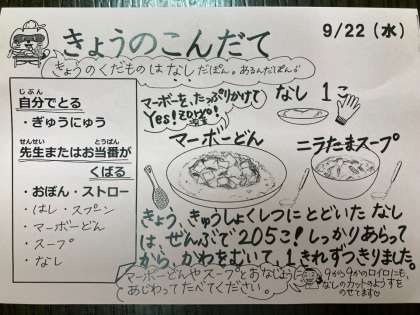 きょうのこんだて
9/22（水）
きょうのくだものはなしだぽん。あるんだぽん♪
自分でとる
じぶん
・ぎゅうにゅう
先生またはお当番が
せんせい とうばん
くばる
・おぼん・ストロー
・はし・スプーン
・マーボーどん
・スープ
・なし
マーボーを、たっぷりかけて
Yes!
なし 1こ
マーボーどん
ニラたまスープ
きょう、きゅうしょくしつにとどいた なし
は、ぜんぶで205こ！しっかりあらって
から、かわをむいて、1きれずつきりました。
マーボーどんやスープとおなじように
あじわってたべてください。
9から9かのロイロにも、
なしのカットのようすを
のせてます